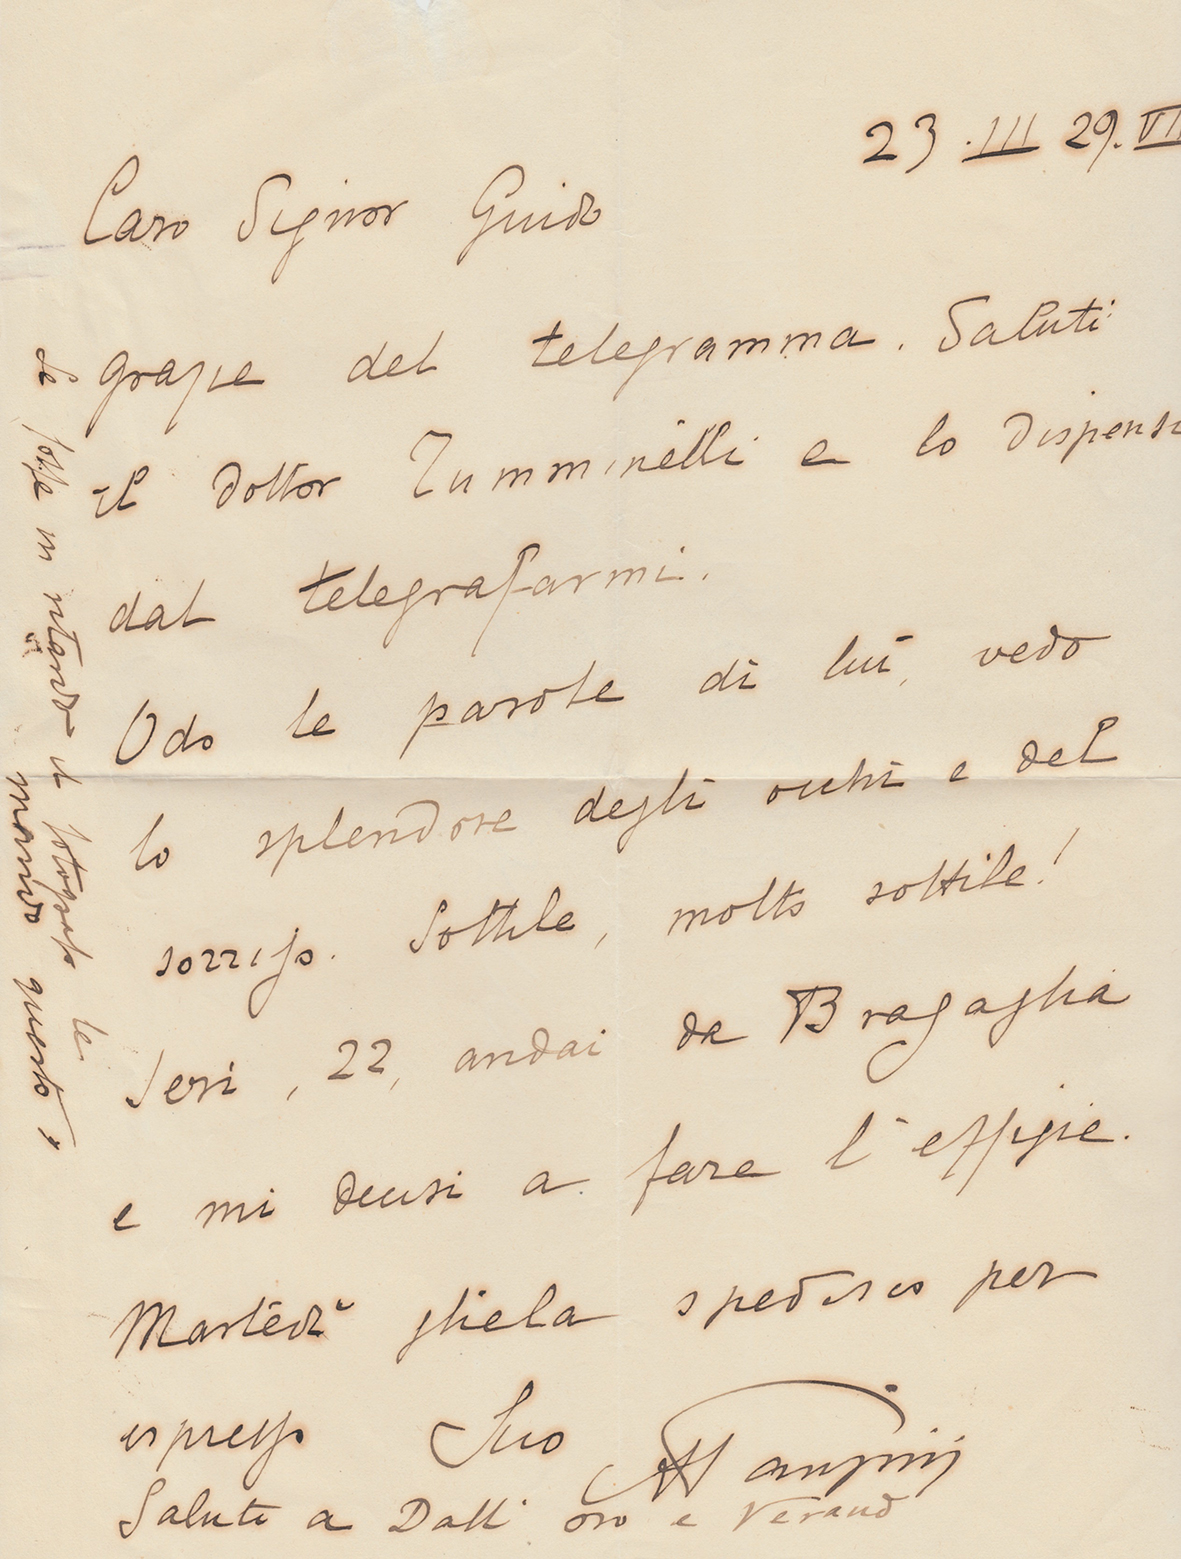 23.III 29.VII
Caro Signor Guido
grazie del telegramma. Saluti
il dottor Tumminelli e lo dispensi
dal telegrafarmi.
Odo le parole di lui, vedo
lo splendore degli occhi e del
sorriso. Sottile, molto sottile!
Ieri, 22, andai da Bragaglia
e mi decisi a fare l'effigie.
Martedì gliela spedisco per
espresso Suo Panzini
Saluti a Dall'oro e
Se fosse in ritardo il fotografo le
mando questo,